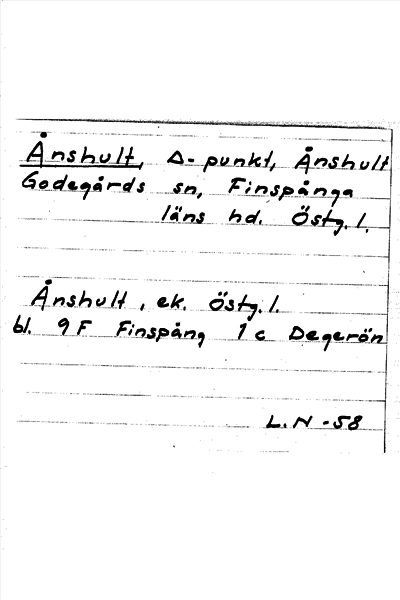 Ånshult, Δ-punkt, Ånshult
Godegårds sn, Finspånga
läns hd. Östg.l.
Ånshult, ek. Östg.l.
bl. 9F Finspång 1c Degerön
L.N -58